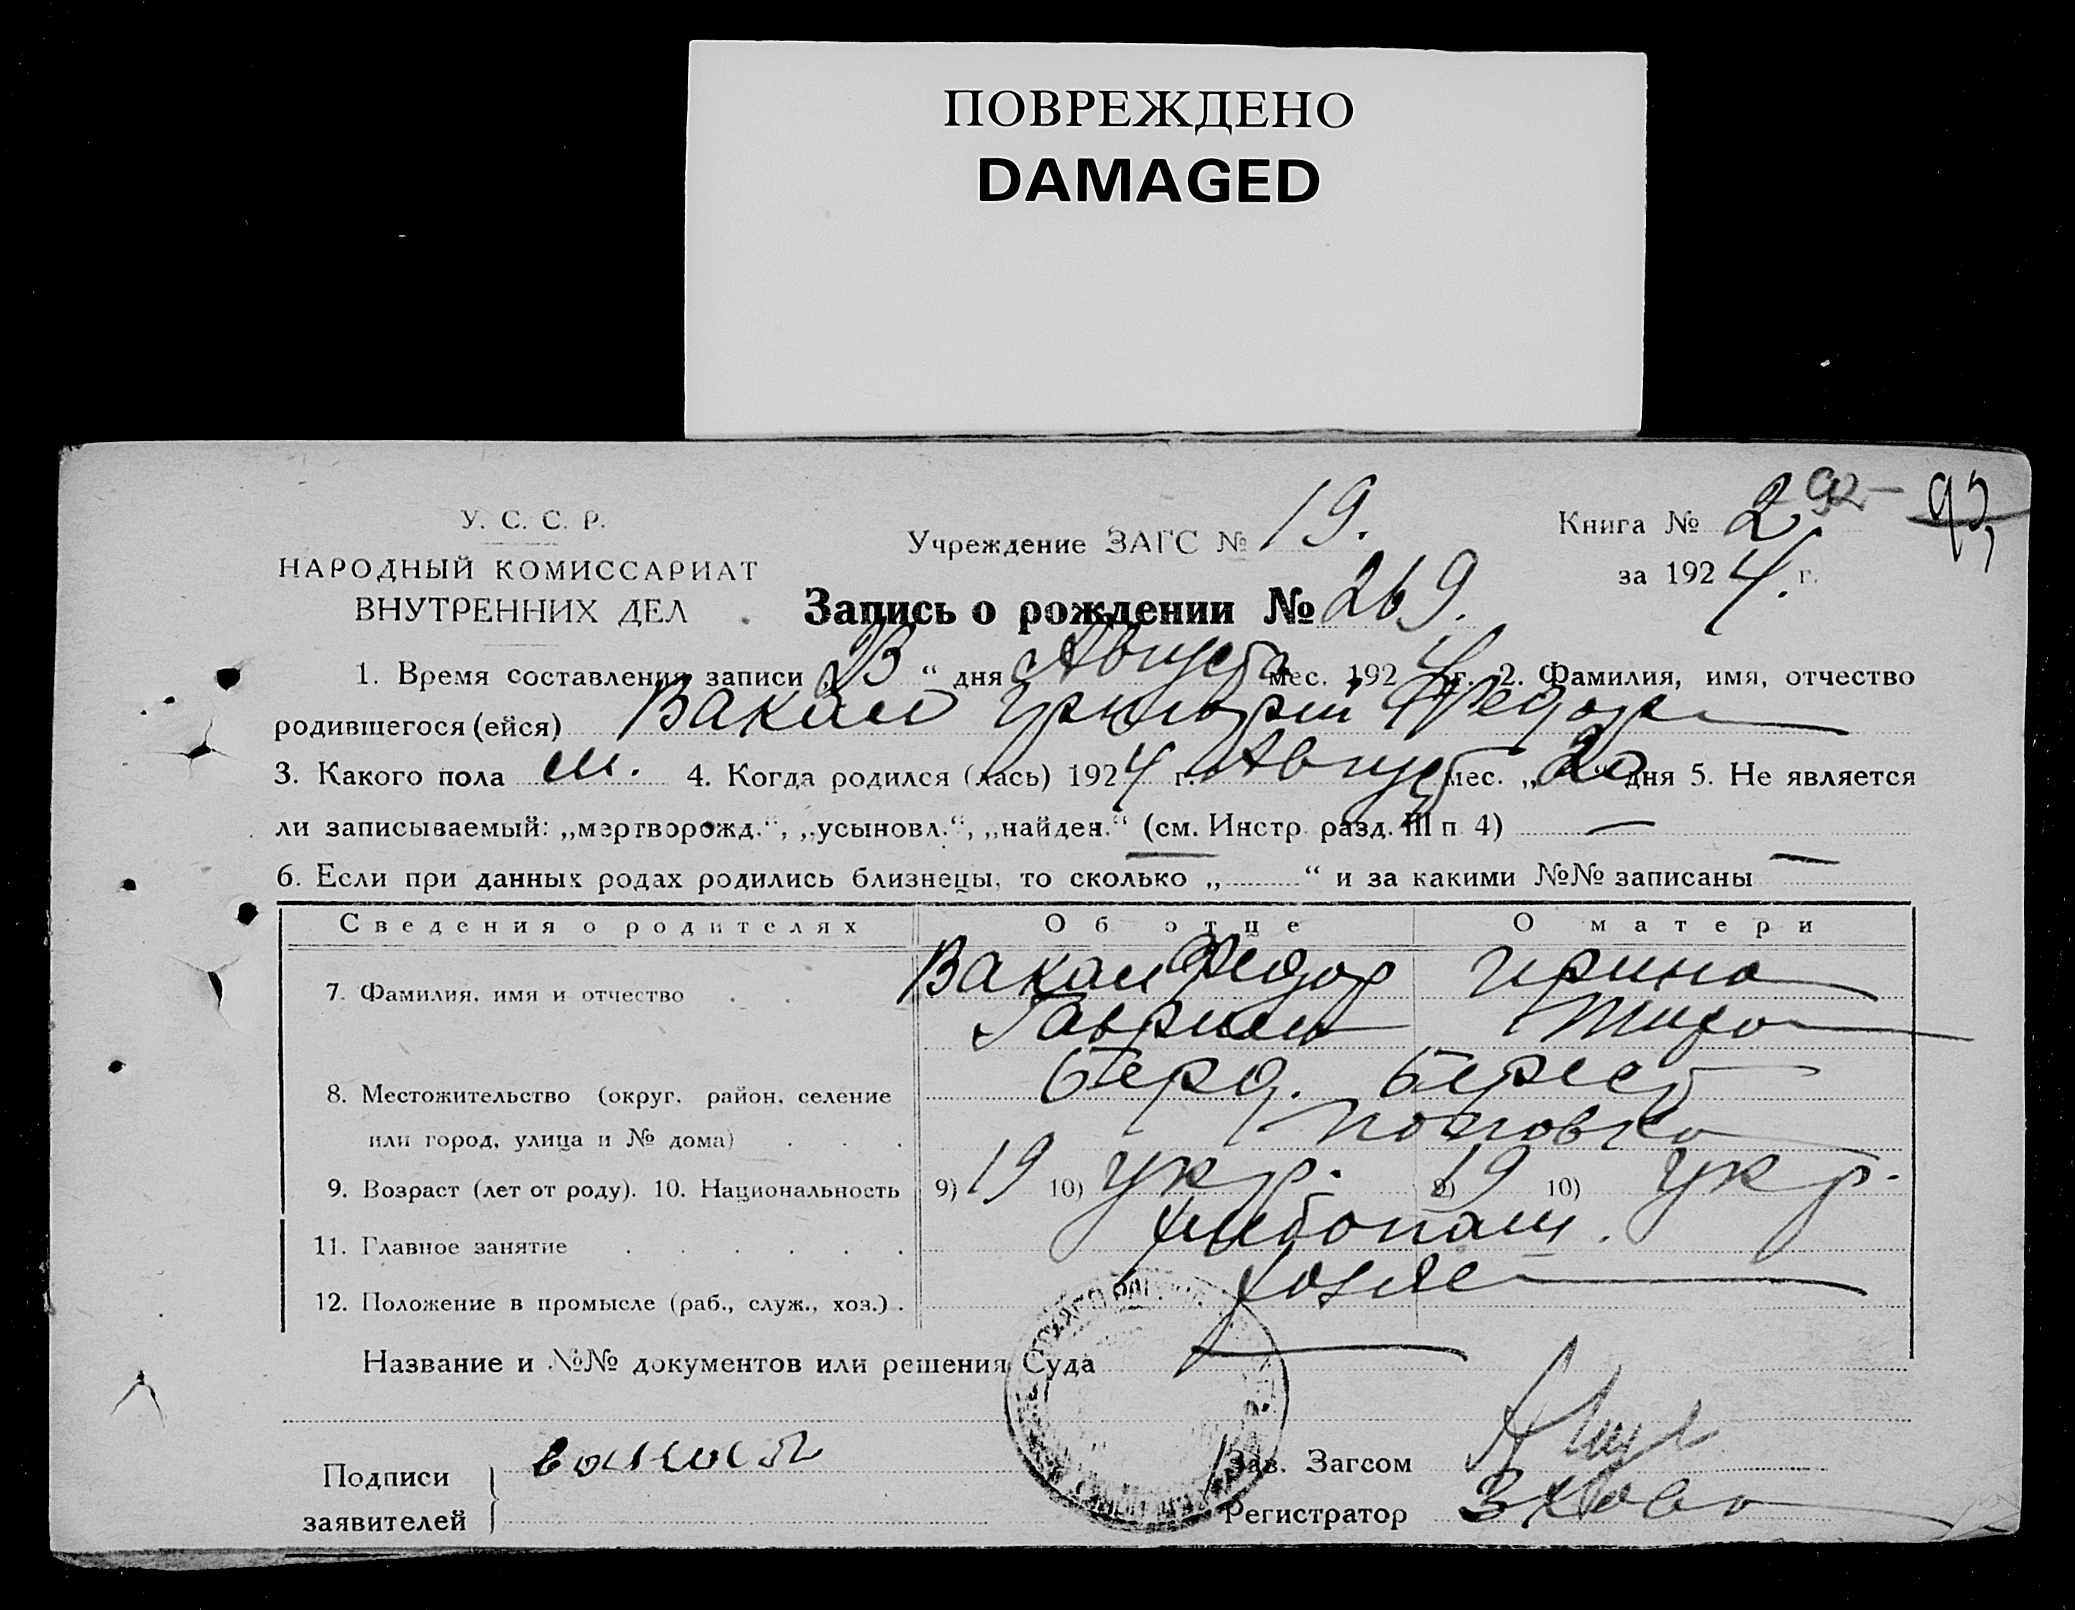 ПОВРЕЖДЕНО
DAMAGED
У. С. С. Р.
НАРОДНЫЙ КОМИССАРИАТ
ВНУТРЕННИХ ДЕЛ
Учреждение ЗАГС № 19.
Книга № 2. 92 93
за 1924 г.
Запись о рождении № 269.
1. Время составления записи „23“ дня Августа мес. 1924 г. 2. Фамилия, имя, отчество
родившегося (ейся) Вакал Григорий Федор
3. Какого пола м. 4. Когда родился (лась) 1924 г. Август мес. „20“ дня 5. Не является
ли записываемый: „мертворожд.“, „усыновл.“, „найден.“ (см. Инстр. разд. III п 4) —
6. Если при данных родах родились близнецы, то сколько „ — “ и за какими №№ записаны —
Сведения о родителях Об отце О матери
7. Фамилия, имя и отчество Вакал Федор Ирина
Гаврил
8. Местожительство (округ, район, селение Берд. Берест
или город, улица и № дома)
9. Возраст (лет от роду). 10. Национальность 9) 19 10) укр. 9) 19 10) укр.
11. Главное занятие хлебопаш.
12. Положение в промысле (раб., служ., хоз.) хозяе
Название и №№ документов или решения Суда —
Подписи
заявителей
Зав. Загсом
Регистратор